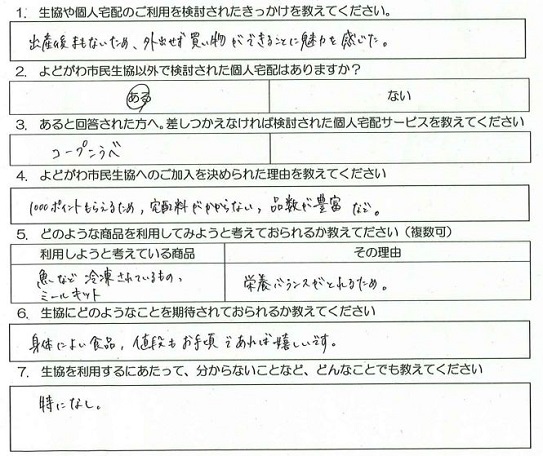 1. 生協や個人宅配のご利用を検討されたきっかけを教えてください。
出産後まもないため、外出せず買い物ができることに魅力を感じた。
2. よどがわ市民生協以外で検討された個人宅配はありますか？
ある ない
3. あると回答された方へ。差しつかえなければ検討された個人宅配サービスを教えてください
コープこうべ
4. よどがわ市民生協へのご加入を決められた理由を教えてください
1000ポイントもらえるため、宅配料がかからない、品数が豊富 など。
5. どのような商品を利用してみようと考えておられるか教えてださい（複数可）
利用しようと考えている商品 その理由
魚など冷凍されているもの、 栄養バランスがとれるため。
ミールキット
6. 生協にどのようなことを期待されておられるか教えてください
身体によい食品、値段もお手頃であれば嬉しいです。
7. 生協を利用するにあたって、分からないことなど、どんなことでも教えてください
時になし。